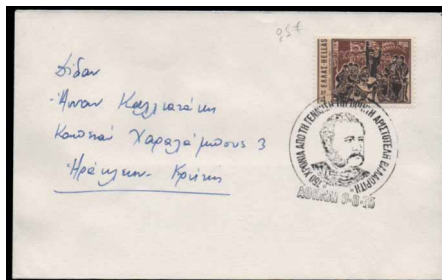 95τ
ΕΛΛΑΣ-HELLAS
Δίδαν
Άνναν Καλλιατάκη
Καπετάν Χαραλάμπους 3
Ηράκλειον - Κρήτης
ΧΡΟΝΙΑ ΑΠΟ ΤΗ ΓΕΝΝΗΣΗ ΤΟΥ ΠΟΙΗΤΗ ΑΡΙΣΤΟΤΕΛΗ ΒΑΛΑΩΡΙΤΗ